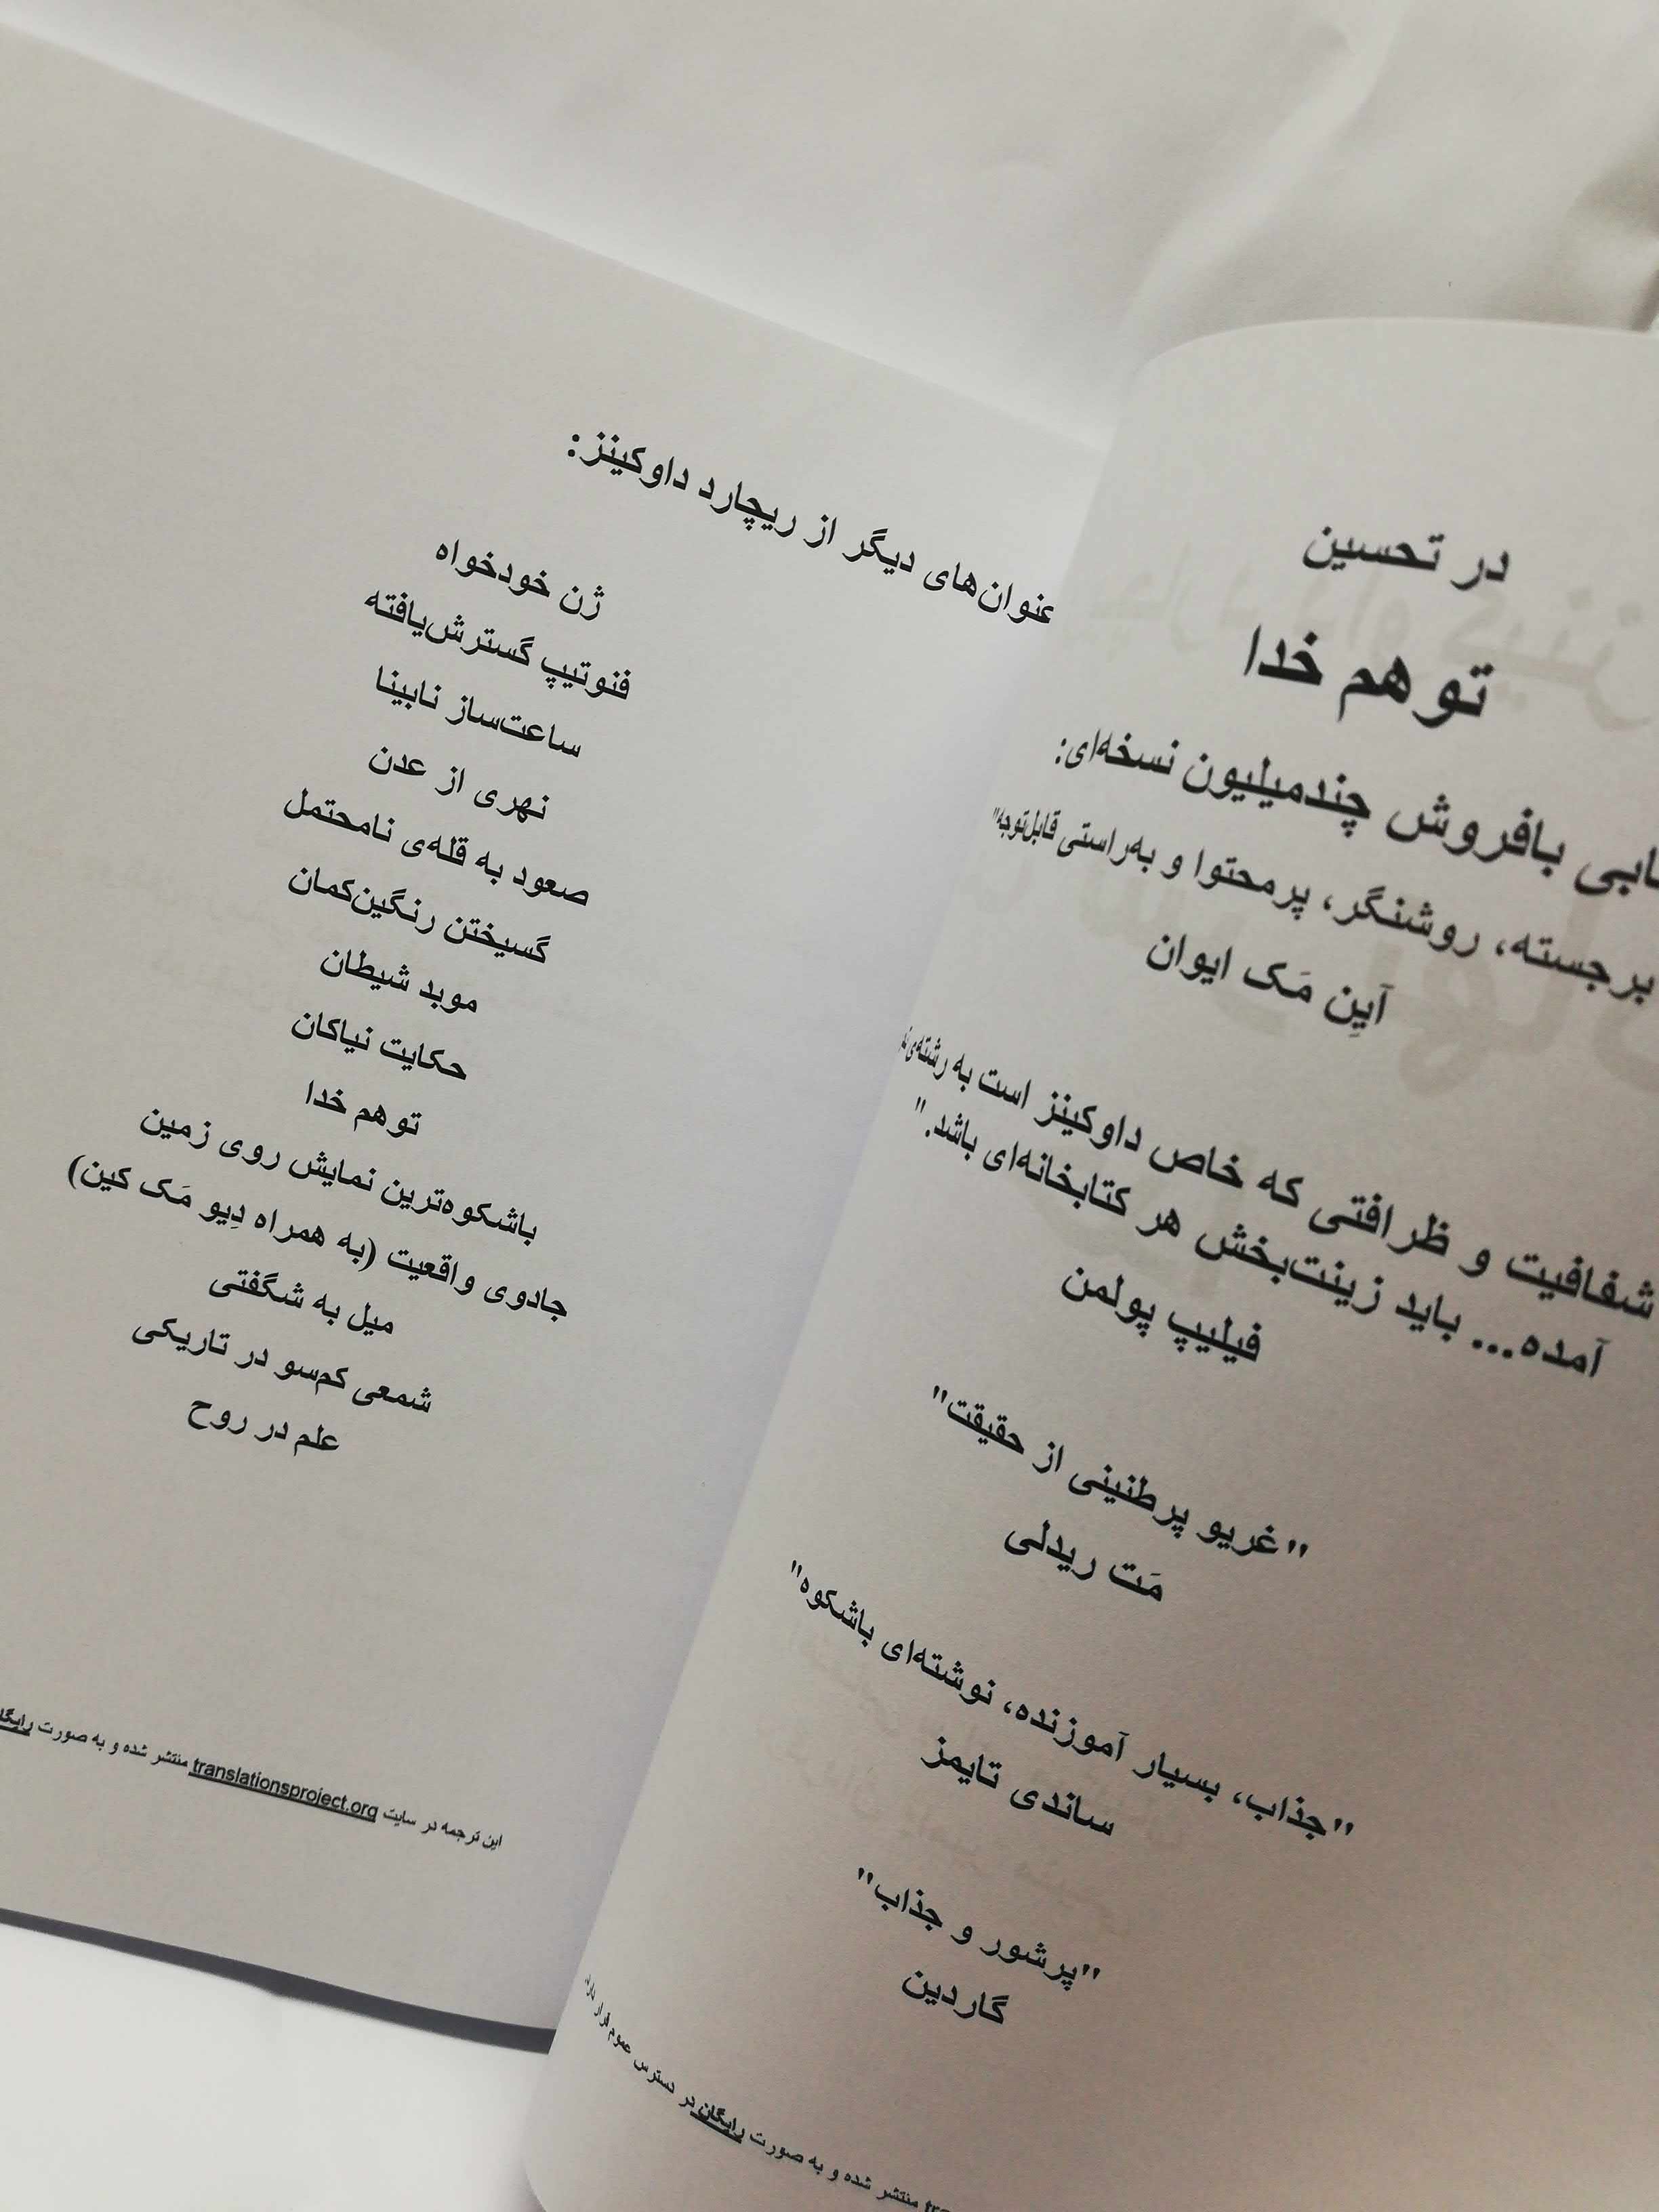 در تحسین
توهم خدا
بافروش چندمیلیون نسخه‌ای:
برجسته، روشنگر، پرمحتوا و به‌راستی قابل‌توجه"
آیِن مَک ایوان
شفافیت و ظرافتی که خاص داوکینز است به رشته‌ی
آمده... باید زینت‌بخش هر کتابخانه‌ای باشد."
فیلیپ پولمن
"غریو پرطنینی از حقیقت"
مَت ریدلی
"جذاب، بسیار آموزنده، نوشته‌ای باشکوه"
ساندی تایمز
"پرشور و جذاب"
گاردین
منتشر شده و به صورت رایگان در دسترس عموم قرار دارد.
عنوان‌های دیگر از ریچارد داوکینز:
ژن خودخواه
فنوتیپ گسترش‌یافته
ساعت‌ساز نابینا
نهری از عدن
صعود به قله‌ی نامحتمل
گسیختن رنگین‌کمان
موبد شیطان
حکایت نیاکان
توهم خدا
باشکوه‌ترین نمایش روی زمین
جادوی واقعیت (به همراه دِیو مَک کین)
میل به شگفتی
شمعی کم‌سو در تاریکی
علم در روح
این ترجمه در سایت translationsproject.org منتشر شده و به صورت